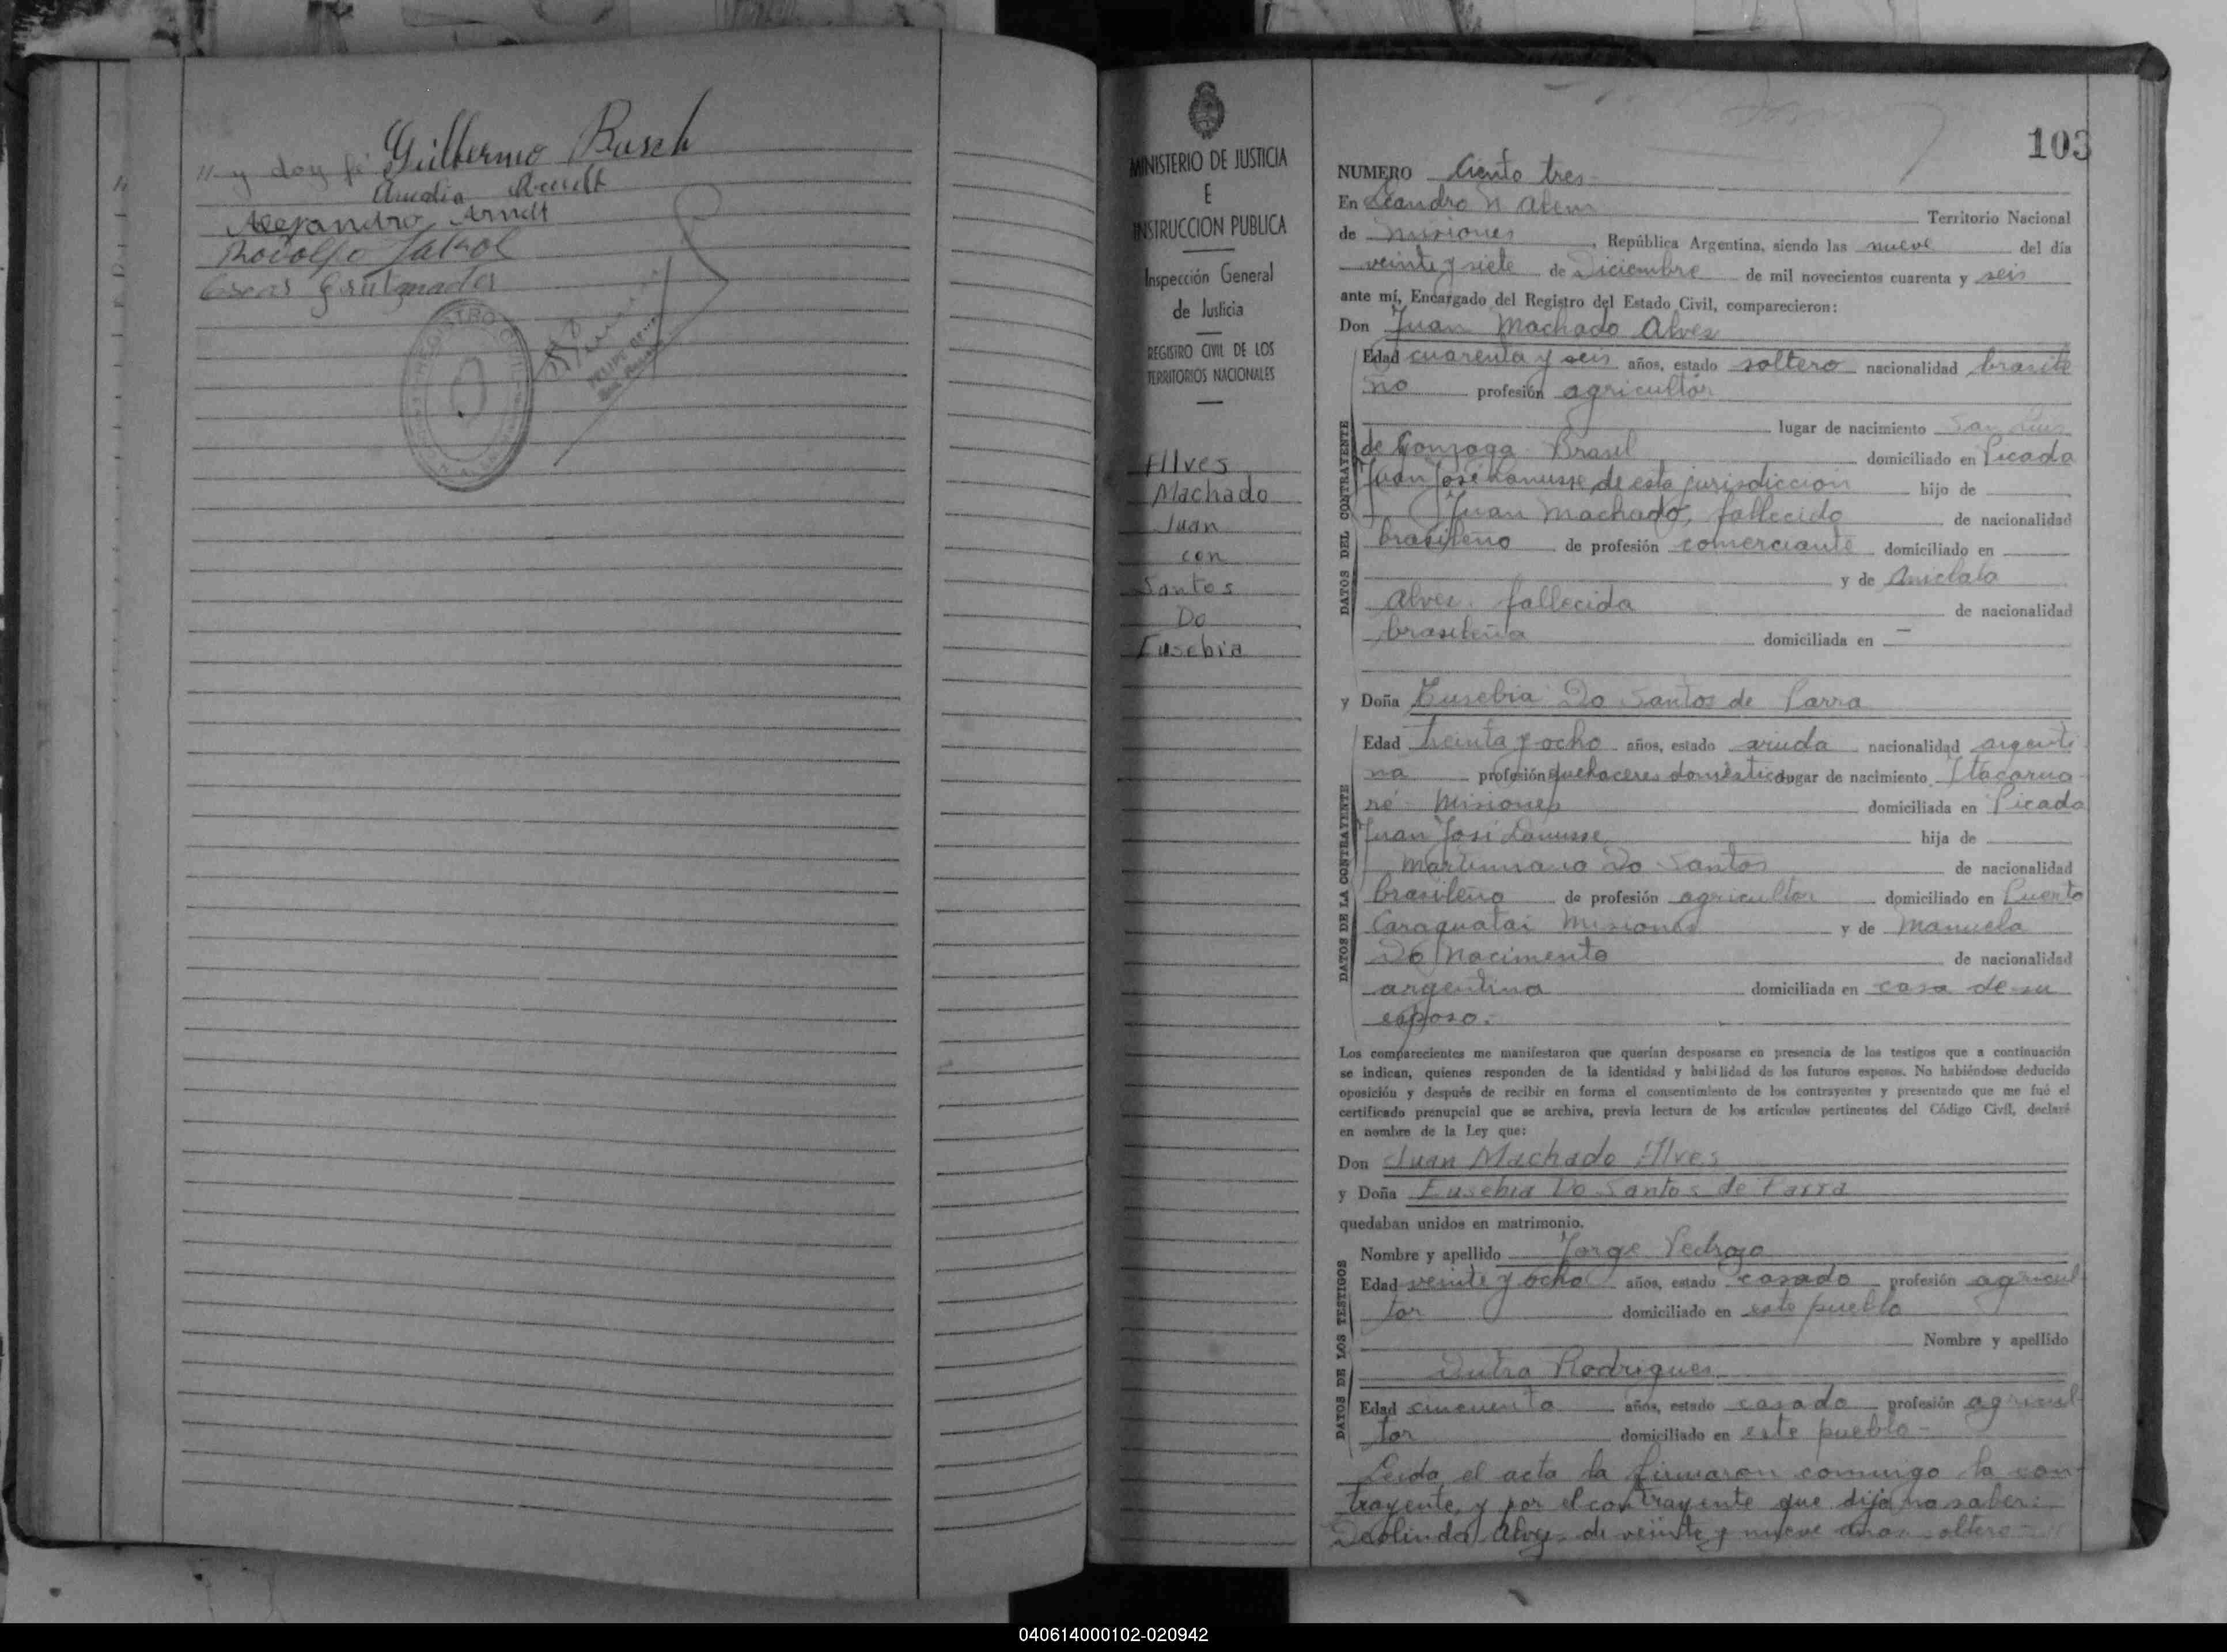 "y doy fé Guilhermo Busch
Amalia Arndt
Alejandro Arndt
Rodolfo Jakob
REGISTRO CIVIL
MINISTERIO DE JUSTICIA
E
INSTRUCCION PUBLICA
Inspección General
de Justicia
REGISTRO CIVIL DE LOS
TERRITORIOS NACIONALES
Alves
Machado
Juan
con
Santos
Do
Eusebia
103
NUMERO Ciento tres
En Leandro N Alem Territorio Nacional
de Misiones, República Argentina, siendo las nueve del día
veinte y siete de Diciembre de mil novecientos cuarenta y seis
ante mí, Encargado del Registro del Estado Civil, comparecieron:
Don Juan Machado Alves
DATOS DEL CONTRAYENTE
Edad cuarenta y seis años, estado soltero nacionalidad brasile
ño profesión agricultor
lugar de nacimiento San Luis
de Gonzaga Brasil domiciliado en Picada
Juan José Lanusse de esta jurisdicción hijo de
Juan Machado, fallecido de nacionalidad
brasileño de profesión comerciante domiciliado en
y de
Alves. fallecida de nacionalidad
brasileña domiciliada en —
y Doña Eusebia Do Santos de Parra
DATOS DE LA CONTRAYENTE
Edad treinta y ocho años, estado viuda nacionalidad argenti
na profesión quehaceres domésticos lugar de nacimiento Itacarua
ré - Misiones domiciliada en Picada
Juan José Lanusse hija de
Martimiano Do Santos de nacionalidad
brasileño de profesión agricultor domiciliado en Puerto
Caraguatai Misiones y de Manuela
Do Nacimento de nacionalidad
argentina domiciliada en casa de su
esposo.
Los comparecientes me manifestaron que querían desposarse en presencia de los testigos que a continuación
se indican, quienes responden de la identidad y habilidad de los futuros esposos. No habiéndose deducido
oposición y después de recibir en forma el consentimiento de los contrayentes y presentado que me fué el
certificado prenupcial que se archiva, previa lectura de los artículos pertinentes del Código Civil, declaré
en nombre de la Ley que:
Don Juan Machado Alves
y Doña Eusebia Do Santos de Parra
quedaban unidos en matrimonio.
DATOS DE LOS TESTIGOS
Nombre y apellido Jorge Pedrozo
Edad veinte y ocho años, estado casado profesión agricul
tor domiciliado en este pueblo
Nombre y apellido
Dutra Rodrigues
Edad cincuenta años, estado casado profesión agricul
tor domiciliado en este pueblo -
Leida el acta la firmaron conmigo la con-
trayente, y por el contrayente que dijo no saber:
Deolinda Alves de veinte y nueve años soltero
040614000102-020942